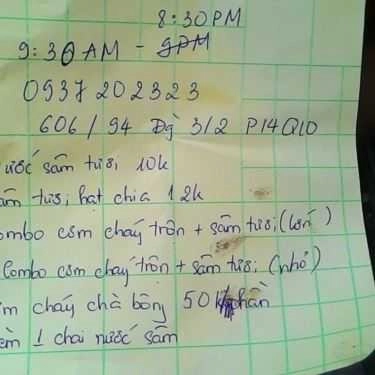 8:30PM
9:30AM - 9PM
0937 202323
606/94 Đg 3/2 P14Q10
ước sâm tươi 10k
âm tươi hạt chia 12k
ombo cơm cháy trộn + sâm tươi (lớn)
Combo cơm cháy trộn + sâm tươi (nhỏ)
m cháy chà bông 50k phần
èm 1 chai nước sâm